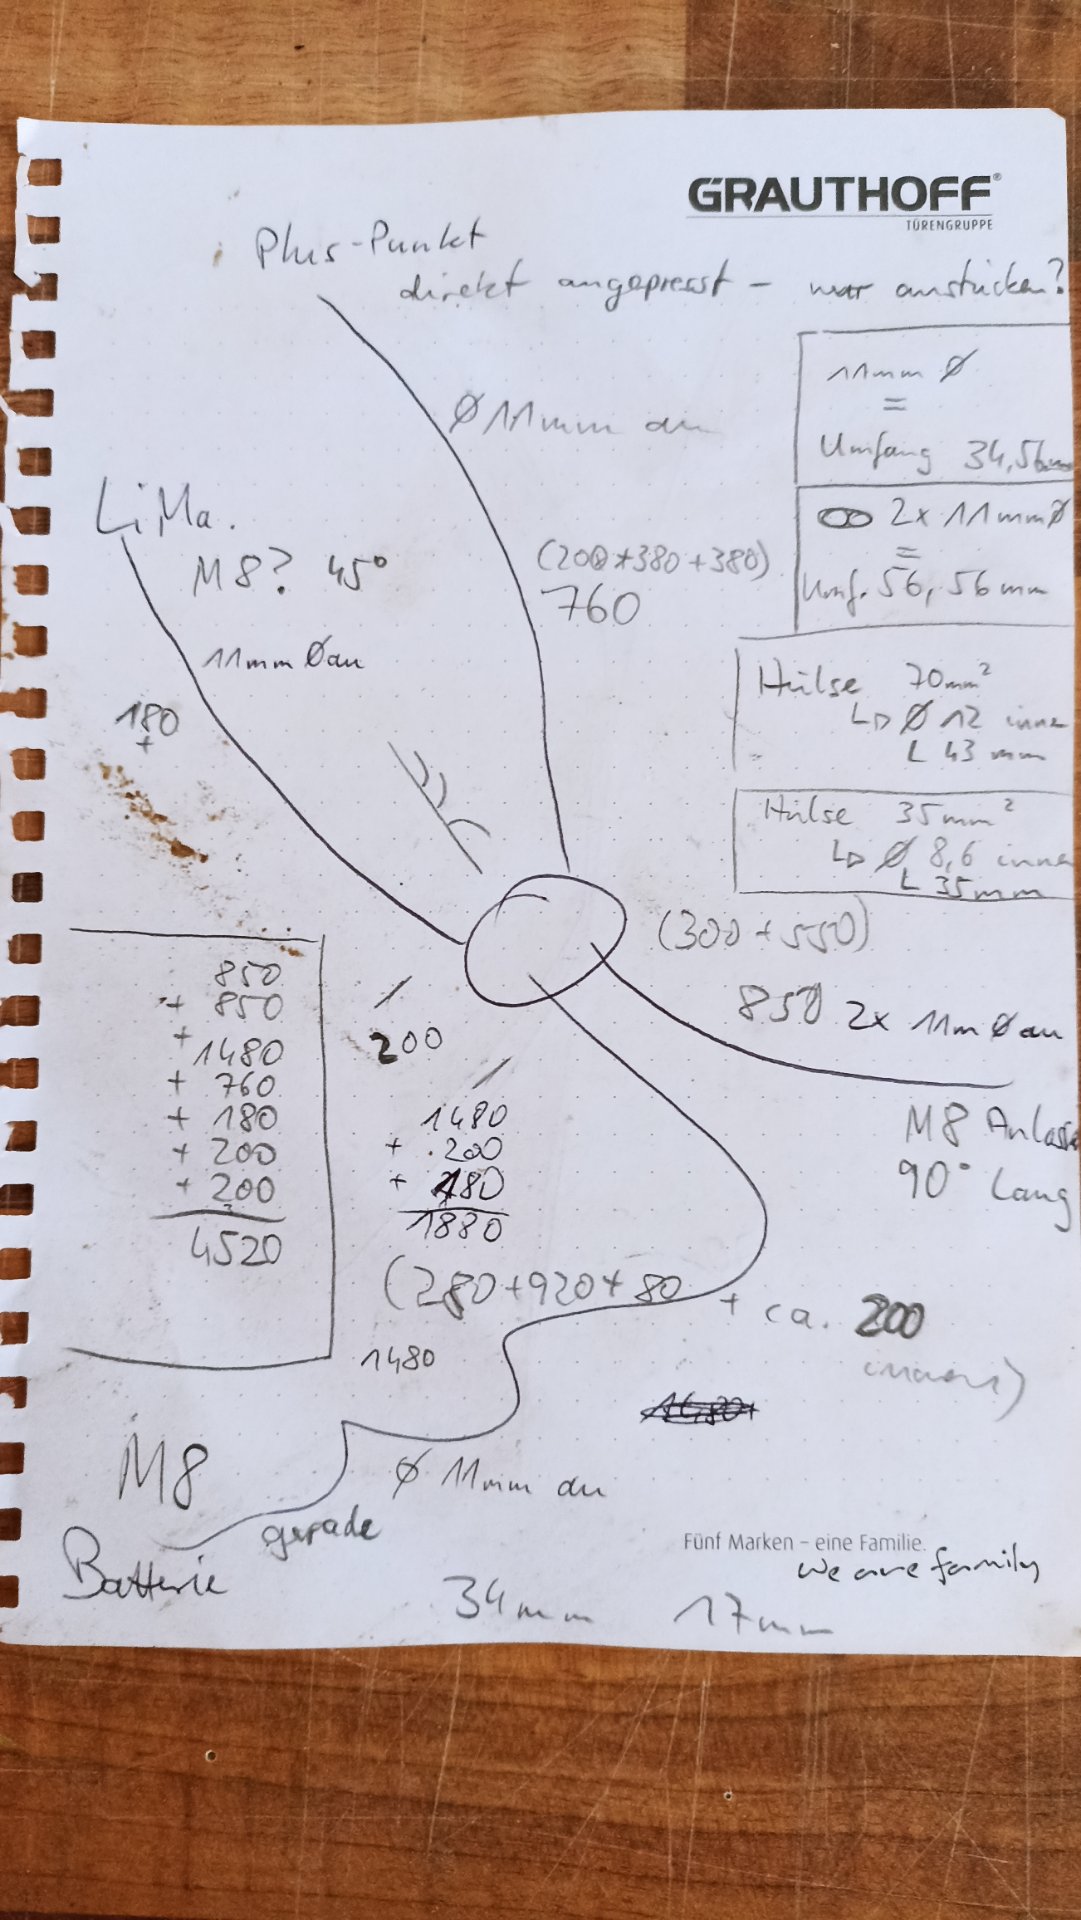 GRAUTHOFF®
TÜRENGRUPPE
Plus-Punkt
direkt angepresst - nur anstücken?
11mm Ø
=
Umfang 34,56mm
Ø 11mm au
2x 11mm Ø
=
Umf. 56,56 mm
LiMa.
M8? 45°
(200+380+380)
760
11mm Ø au
Hülse 70mm²
Ø 12 innen
L 43 mm
180
+
Hülse 35mm²
Ø 8,6 innen
L 35mm
(300+550)
850 2x 11m Ø au
850
+ 850
+ 1480
+ 760
+ 180
+ 200
+ 200
4520
200
1480
+ 200
+ 180
1880
M8 Anlasser
90° Lang
(280+920+80 + ca. 200
1480
M8
Ø 11mm au
gerade
Batterie
Fünf Marken – eine Familie.
we are family
34mm 17mm